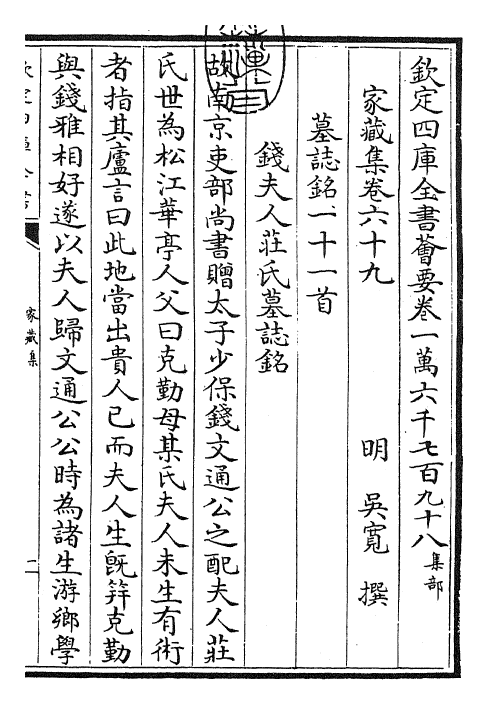 欽定四庫全書薈要卷一萬六千七百九十八集部
家藏集卷六十九　明　吳寬　撰
墓誌銘一十一首
錢夫人莊氏墓誌銘
故南京吏部尚書贈太子少保錢文通公之配夫人莊
氏世為松江華亭人父曰克勤母某氏夫人未生有術
者指其廬言曰此地當出貴人已而夫人生旣筓克勤
與錢雅相好遂以夫人歸文通公公時為諸生游鄉學
家藏集